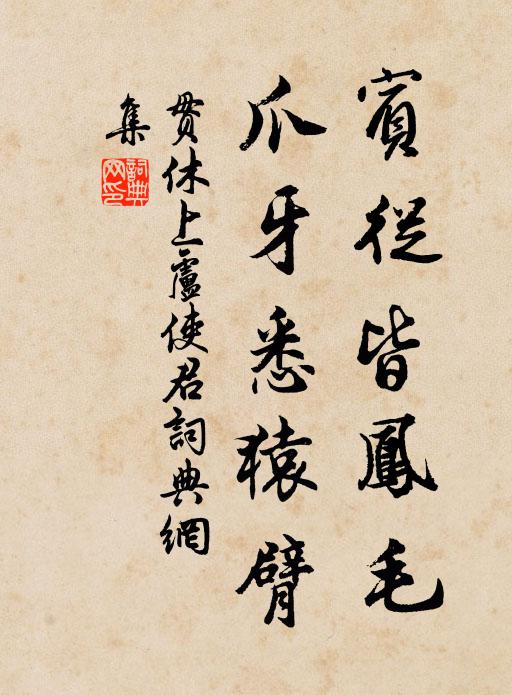 賓從皆鳳毛
爪牙悉猿臂
貫休上盧使君詞典網
集
詞典
网印